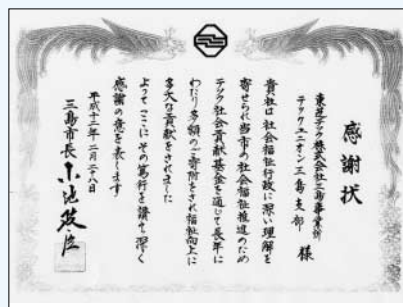 感謝状
東芝テック株式会社三島事業所
テックユニオン三島支部 様
貴社は社会福祉行政に深い理解を
寄せられ当市の社会福祉推進のため
テック社会貢献基金を通じて長年に
わたり多額のご寄附をされ福祉向上に
多大な貢献をされました
よってここにその篤行を讃え深く
感謝の意を表します
平成十三年二月二十八日
三島市長 小池政臣